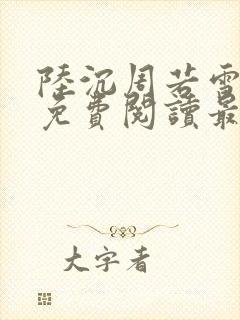 陸沉周若雪
免費閱讀最
大字者